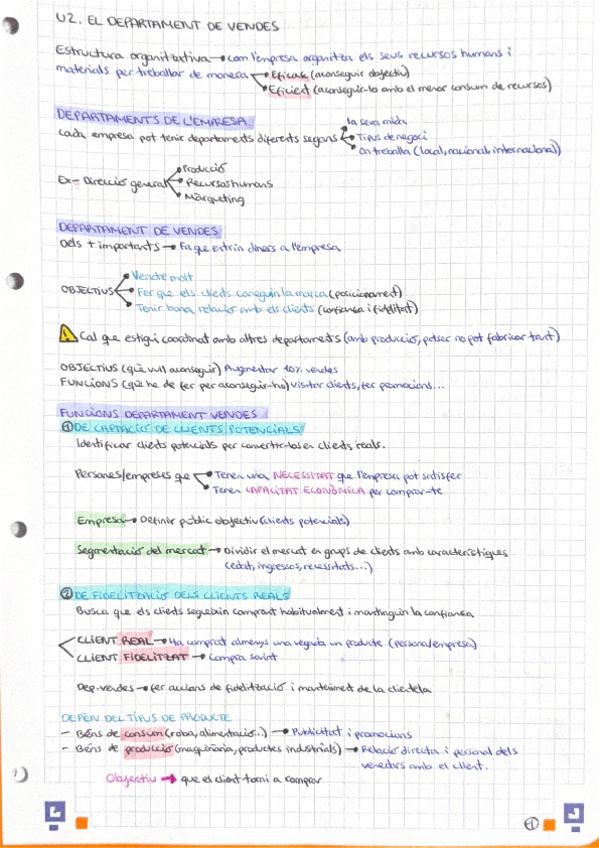 U2. EL DEPARTAMENT DE VENDES
Estructura organitzativa → com l'empresa organitza els seus recursos humans i
materials per treballar de manera
Eficaç (aconseguir objectiu)
Eficient (aconseguir-lo amb el menor consum de recursos)
DEPARTAMENTS DE L'EMPRESA
cada empresa pot tenir departaments diferents segons
la seva mida
Tipus de negoci
On treballa (local, nacional, internacional)
Ex- Direcció general
Producció
Recursos humans
Màrqueting
DEPARTAMENT DE VENDES
Dels + importants → Fa que entrin diners a l'empresa
OBJECTIUS
Vendre molt
Fer que els clients coneguin la marca (posicionament)
Tenir bona relació amb els clients (confiança i fidelitat)
! Cal que estigui coordinat amb altres departaments (amb producció, potser no pot fabricar tant)
OBJECTIUS (què vull aconseguir) Augmentar 10% vendes
FUNCIONS (què he de fer per aconseguir-ho) visitar clients, fer promocions...
FUNCIONS DEPARTAMENT VENDES
① DE CAPTACIÓ DE CLIENTS POTENCIALS
Identificar clients potencials per convertir-los en clients reals.
Persones/empreses que
Tenen una NECESSITAT que l'empresa pot satisfer
Tenen CAPACITAT ECONÒMICA per comprar-te
Empresa → Definir públic objectiu (clients potencials)
Segmentació del mercat → Dividir el mercat en grups de clients amb característiques
(edat, ingressos, necessitats...)
② DE FIDELITZACIÓ DELS CLIENTS REALS
Busca que els clients segueixin comprant habitualment i mantinguin la confiança
CLIENT REAL → Ha comprat almenys una vegada un producte (persona/empresa)
CLIENT FIDELITZAT → Compra sovint
Dep. vendes → fer accions de fidelització i manteniment de la clientela
DEPÈN DEL TIPUS DE PRODUCTE
- Béns de consum (roba, alimentació..) → Publicitat i promocions
- Béns de producció (maquinària, productes industrials) → Relació directa i personal dels
venedors amb el client.
Objectiu → que el client torni a comprar
1